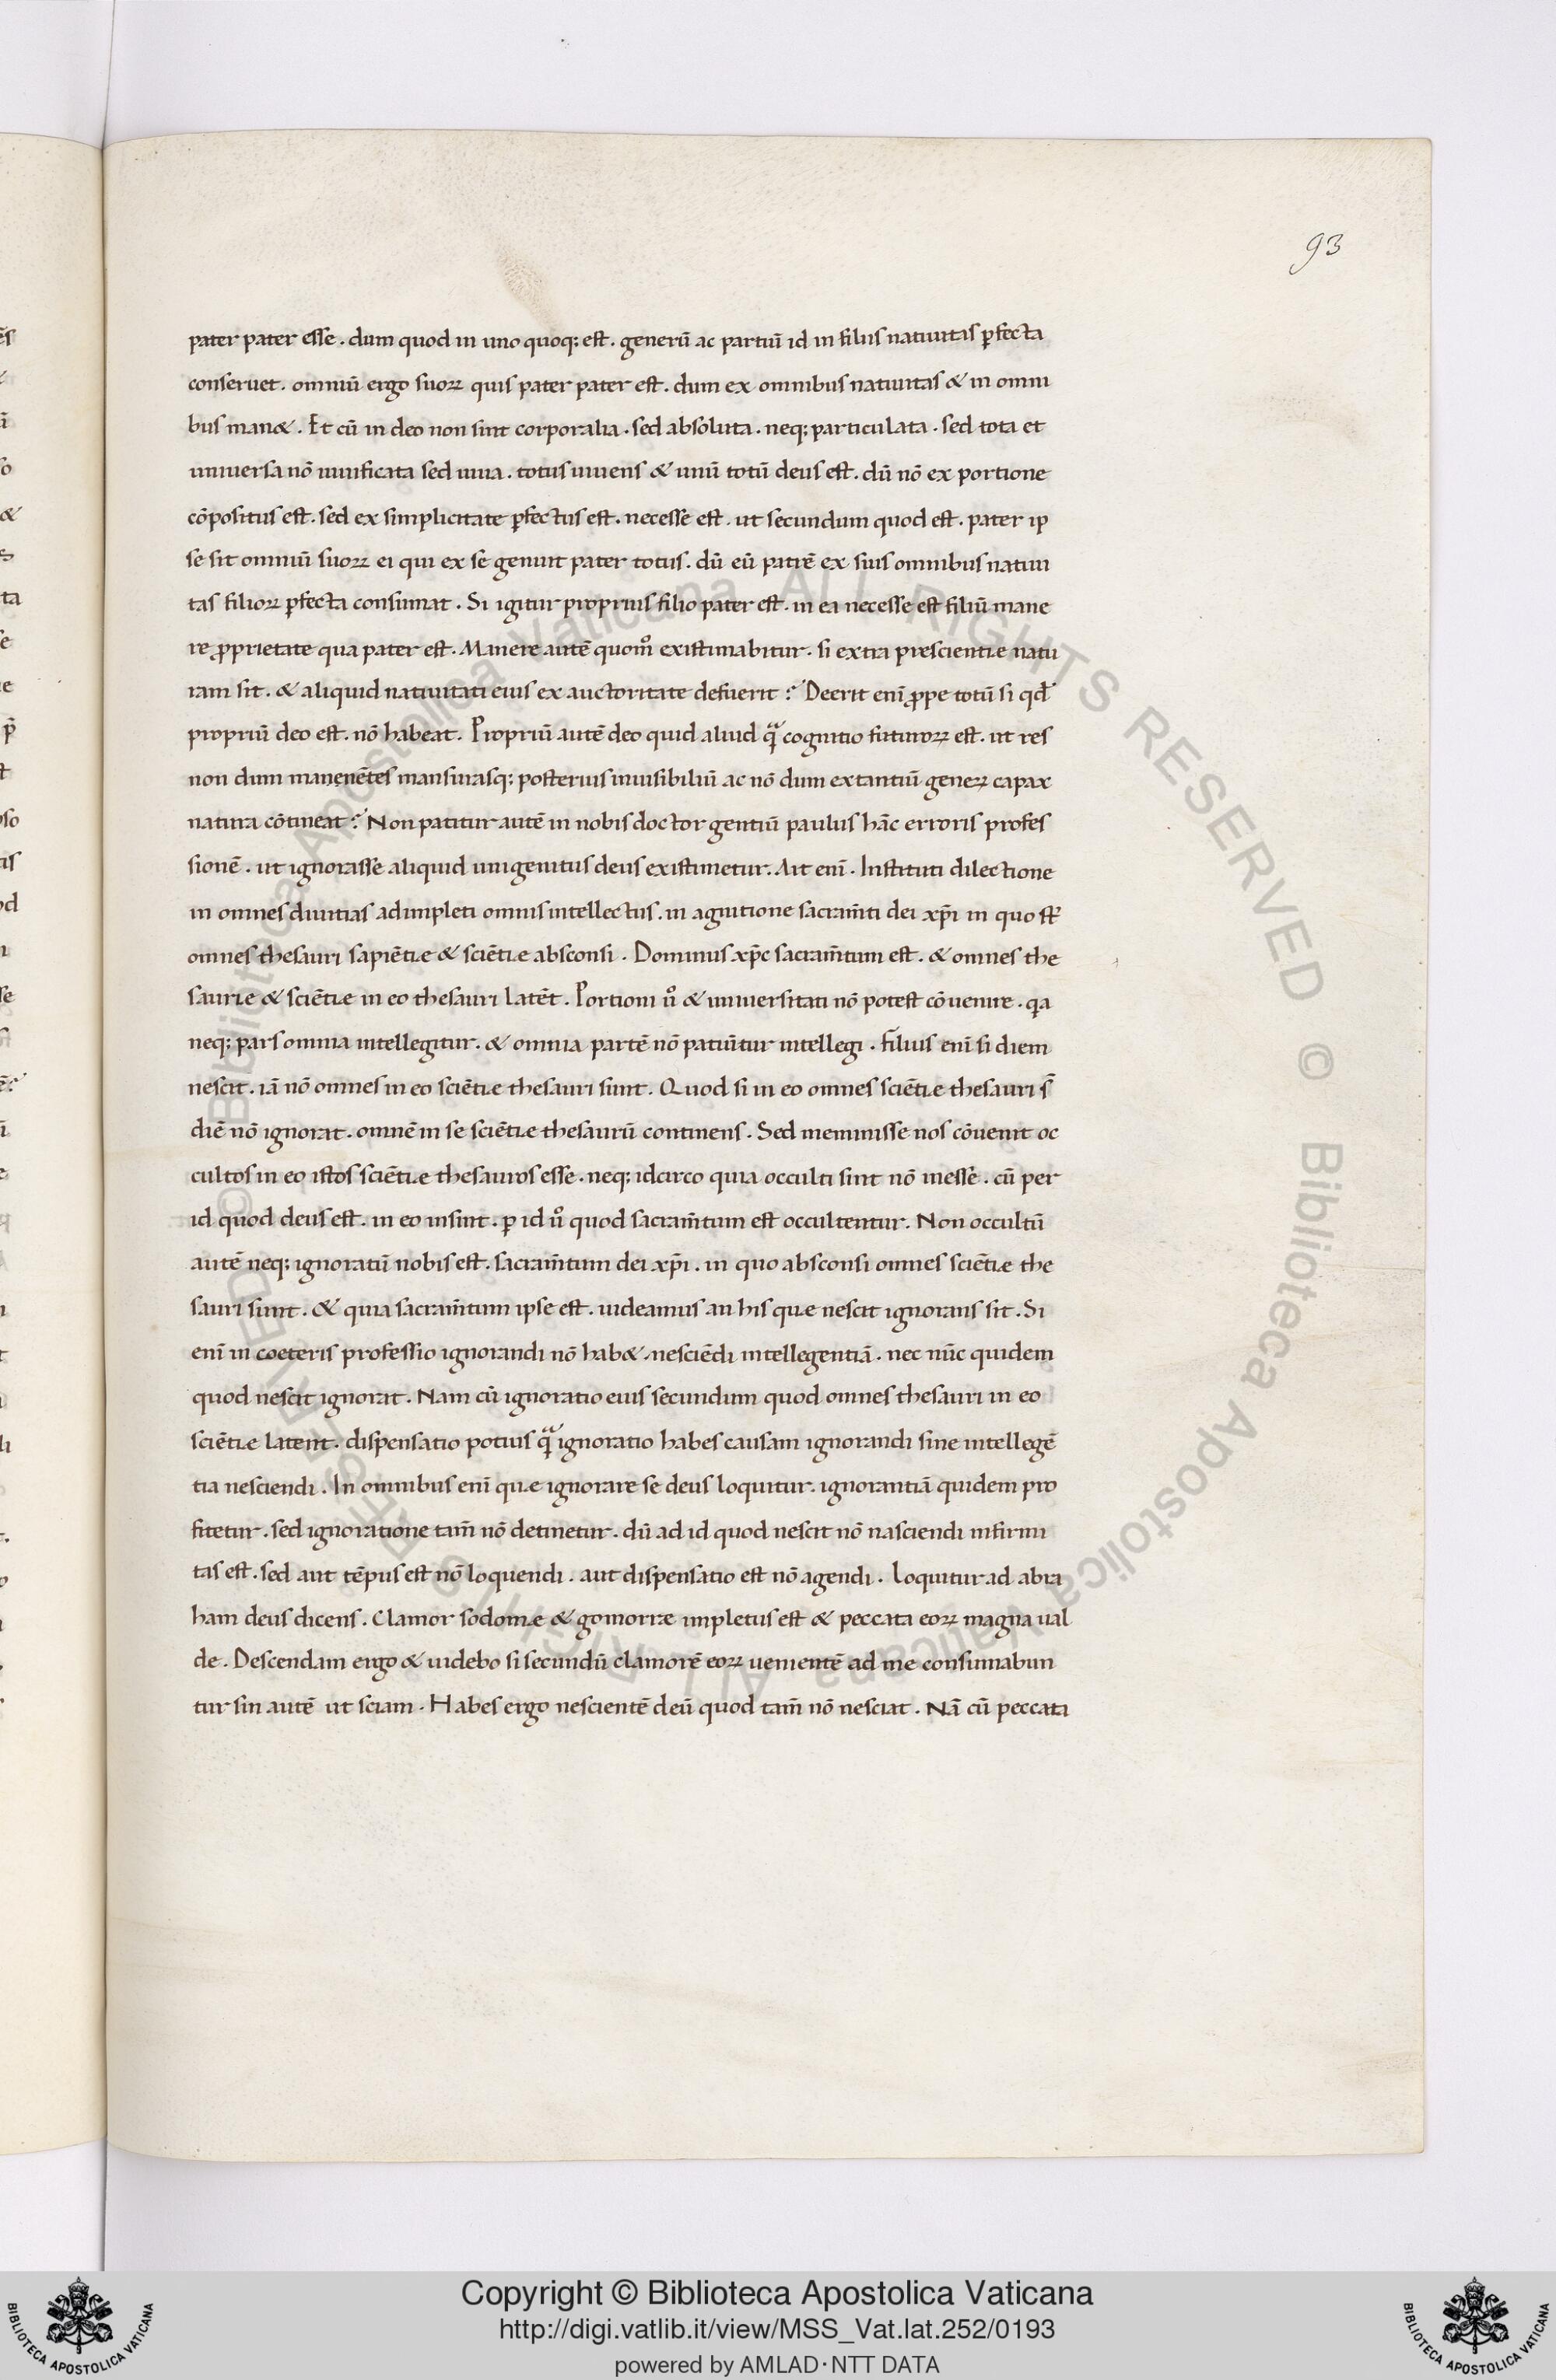 93
pater pater esse . dum quod in uno quoq; est . generū ac partiū id in filiis natiuitas ꝑfecta
conseruet . omniū ergo suoꝝ quis pater pater est . dum ex omnibus natiuitas & in omni
bus man& . Et cū in deo non sint corporalia . sed absoluta . neq; particulata . sed tota et
uniuersa nō uiuificata sed uiua . totus uiuens & unū totū deus est . dū nō ex portione
cōpositus est . sed ex simplicitate ꝑfectus est . necesse est . ut secundum quod est . pater ip
se sit omniū suoꝝ ei qui ex se genuit pater totus . dū eū patrē ex suis omnibus natiui
tas filioꝝ ꝑfecta consumat . Si igitur proprius filio pater est . in ea necesse est filiū mane
re ꝓprietate qua pater est . Manere autē quom̊ existimabitur . si extra prescientię natu
ram sit . & aliquid natiuitati eius ex auctoritate defuerit ? Deerit enī ꝓpe totū si qđ
propriū deo est . nō habeat . Propriū autē deo quid aliud qᷓ cognitio futuroꝝ est . ut res
non dum manenētes mansurasq; posterius inuisibiliū ac nō dum extantiū geneꝝ capax
natura cōtineat ? Non patitur autē in nobis doctor gentiū paulus hāc erroris profes
sionē . ut ignorasse aliquid unigenitus deus existimetur . Ait enī . Instituti dilectione
in omnes diuitias adimpleti omnis intellectus . in agnitione sacram̄ti dei xp̄i in quo st̄
omnes thesauri sapiētię & sciētię absconsi . Dominus xp̄c sacram̄tum est . & omnes the
saurię & sciētię in eo thesauri latēt . Portioni ů & uniuersitati nō potest cōuenire . qa
neq; pars omnia intellegitur . & omnia partē nō patiūtur intellegi . Filius enī si diem
nescit . iā nō omnes in eo sciētię thesauri sunt . Quod si in eo omnes sciētię thesauri s̄
diē nō ignorat . omnē in se sciētię thesaurū continens . Sed meminisse nos cōuenit oc
cultos in eo istos sciētię thesauros esse . neq; idcirco quia occulti sint nō inesse . cū per
id quod deus est . in eo insint . ꝑ id ů quod sacram̄tum est occultentur . Non occultū
autē neq; ignoratū nobis est . sacram̄tum dei xp̄i . in quo absconsi omnes sciētię the
sauri sunt . & quia sacram̄tum ipse est . uideamus an his quę nescit ignorans sit . Si
enī in coeteris professio ignorandi nō hab& . nesciēdi intellegentiā . nec nūc quidem
quod nescit ignorat . Nam cū ignoratio eius secundum quod omnes thesauri in eo
sciētię latent . dispensatio potius qᷓ ignoratio habes causam ignorandi sine intellegē
tia nesciendi . In omnibus enī quę ignorare se deus loquitur . ignorantiā quidem pro
fitetur . sed ignoratione tam̄ nō detinetur . dū ad id quod nescit nō nasciendi infirmi
tas est . sed aut tēpus est nō loquendi . aut dispensatio est nō agendi . Loquitur ad abra
ham deus dicens . Clamor sodomę & gomorrę impletus est & peccata eoꝝ magna ual
de . Descendam ergo & uidebo si secundū clamorē eoꝝ uenientē ad me consumabun
tur sin autē ut sciam . Habes ergo nescientē deū quod tam̄ nō nesciat . Nā cū peccata
© Biblioteca Apostolica Vaticana ALL RIGHTS RESERVED © Biblioteca Apostolica Vaticana ALL RIGHTS RESERVED
Copyright © Biblioteca Apostolica Vaticana
http://digi.vatlib.it/view/MSS_Vat.lat.252/0193
powered by AMLAD·NTT DATA
BIBLIOTECA APOSTOLICA VATICANA
BIBLIOTECA APOSTOLICA VATICANA